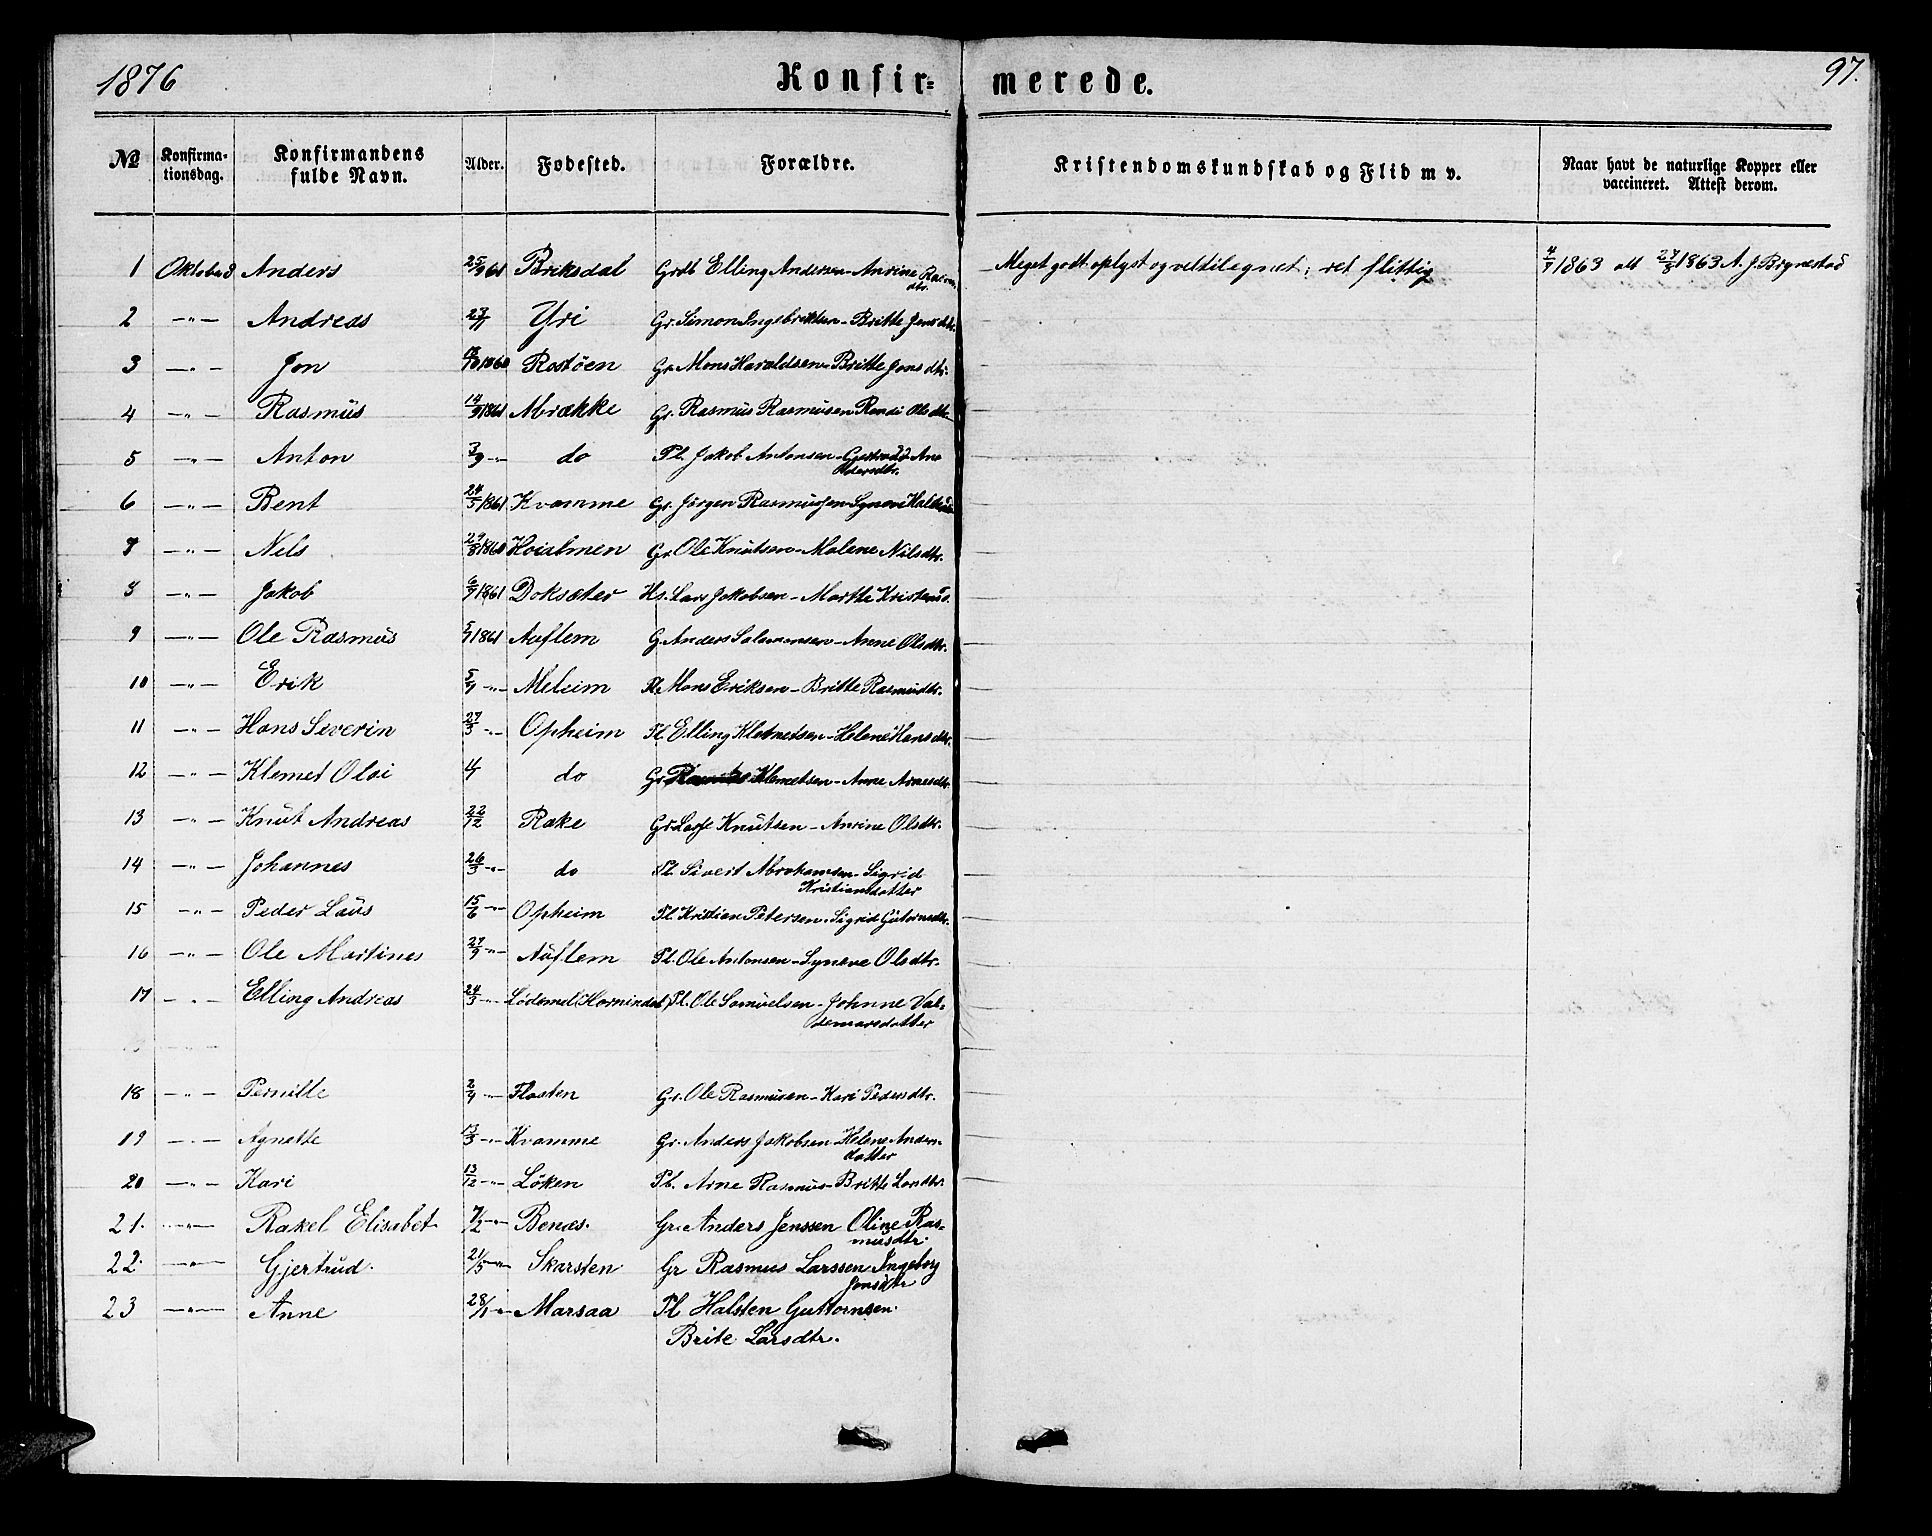 1876 Konfir= merede. 97.
№ Konfirma- Konfirmandens Alder. Fødested. Forældre. Kristendomskundskab og Flid m v. Naar havt de naturlige Kopper eller
tionsdag. fulde Navn. vaccineret. Attest derom.
1 Oktober 8 Anders 25/9 61 Briksdal Grdb Elling Andersen - Anrine Rasm. Meget godt oplyst og veltilegnet; ret flittig 4/7 1863 att 27/8 1863 A. J. Brynestad
dtr.
2 —"— Andreas Yri Gr. Simon Ingebriktsen - Britte Jensdtr.
3 —"— Jon 1860 Rostöen Gr. Mons Haraldsen - Britte Jonsdtr.
4 —"— Rasmus 14/9 1861 Mrække Gr. Rasmus Rasmusen Randi Olsdtr.
5 —"— Anton 3/9 —"— do Pl. Jakob Antonsen - Gjertrud Ane
6 —"— Bent 24/5 1861 Kvamme Gr. Jörgen Rasmussen Synøve
7 —"— Nels 1860 Hoialmen Gr. Ole Knutsen - Malene Nilsdtr.
8 —"— Jakob 6/7 1861 Doksæter Hs. Lars Jakobsen - Marthe
9 —"— Ole Rasmus 5/7 1861 Auflem G. Anders Salamonsen - Anne Olsdtr.
10 —"— Erik —"— Meleim Pl. Mons Eriksen - Britte Rasmusdtr.
11 —"— Hans Siverin 27/3 —"— Opheim Pl. Elling Klemetsen - Helene Hansdtr.
12 —"— Klemet Olai do Gr. Klemetsen - Anne Arnesdtr.
13 —"— Knut Andreas 22/12 Rake Gr. Lasse Knutsen - Anrine Olsdtr.
14 —"— Johannes 26/3 —"— do Pl. Sivert Abrahamsen - Sigrid
Kristiansdatter
15 —"— Peder Laus 15/6 —"— Opheim Pl. Kristian Petersen - Sigrid Gutormsdtr.
16 —"— Ole Martines —"— Auflem Pl. Ole Antonsen - Synøve Olsdtr.
17 —"— Elling Andreas 24/3 —"— Lödemel (Hornindal) Pl. Ole Samuelsen - Johnne Val-
demarsdatter
18 —"— Pernille —"— Flaaten Gr. Ole Rasmusen - Kari Pedersdtr.
19 —"— Agnette 13/3 —"— Kvamme Gr. Anders Jakobsen Helene Anders-
datter
20 —"— Kari 13/12 —"— Löken Pl. Arne Rasmus - Britte
21. —"— Rakel Elisabet 7/2 —"— Benæs. Gr. Anders Jenssen Oline Ras-
musdtr.
22. —"— Gjertrud. 21/5 —"— Skarsten Gr Rasmus Larssen Ingeborg
Jonsdtr
23 —"— Anne 28/1 —"— Marsaa Pl Halsten Guttormsen.
Brite Larsdtr.